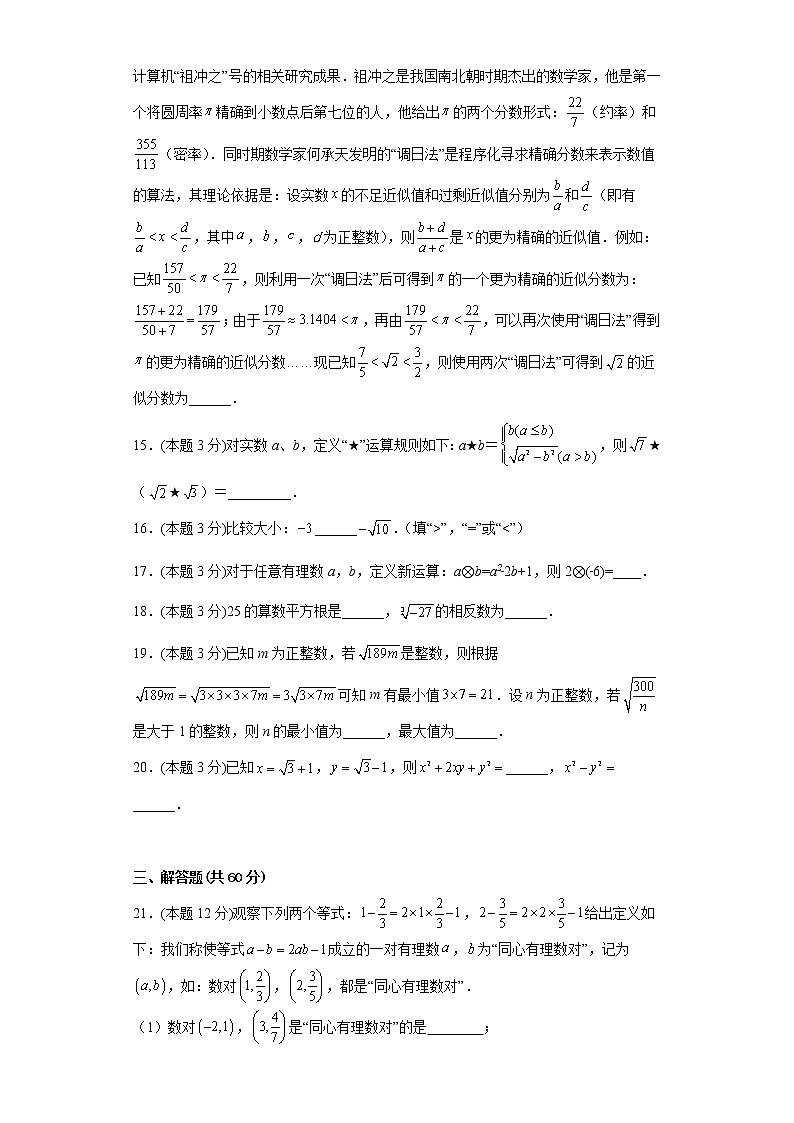 计算机“祖冲之”号的相关研究成果．祖冲之是我国南北朝时期杰出的数学家，他是第一
个将圆周率π精确到小数点后第七位的人，他给出π的两个分数形式：22/7（约率）和
355/113（密率）．同时期数学家何承天发明的“调日法”是程序化寻求精确分数来表示数值
的算法，其理论依据是：设实数x的不足近似值和过剩近似值分别为b/a和d/c（即有
b/a<x<d/c，其中a，b，c，d为正整数），则(b+d)/(a+c)是x的更为精确的近似值．例如：
已知157/50<π<22/7，则利用一次“调日法”后可得到π的一个更为精确的近似分数为：
(157+22)/(50+7)=179/57；由于179/57≈3.1404<π，再由179/57<π<22/7，可以再次使用“调日法”得到
π的更为精确的近似分数……现已知7/5<√2<3/2，则使用两次“调日法”可得到√2的近
似分数为______．
15．(本题3分)对实数a、b，定义“★”运算规则如下：a★b＝{b(a≤b) √(a²−b²)(a>b)，则√7★
（√2★√3）＝_________．
16．(本题3分)比较大小：−3______−√10．（填“>”，“=”或“<”）
17．(本题3分)对于任意有理数a，b，定义新运算：a⊗b=a²-2b+1，则2⊗(-6)=____．
18．(本题3分)25的算数平方根是______，³√−27的相反数为______．
19．(本题3分)已知m为正整数，若√189m是整数，则根据
√189m=√3×3×3×7m=3√3×7m可知m有最小值3×7=21．设n为正整数，若√(300/n)
是大于1的整数，则n的最小值为______，最大值为______．
20．(本题3分)已知x=√3+1，y=√3−1，则x²+2xy+y²=______，x²−y²=
______．
三、解答题(共60分)
21．(本题12分)观察下列两个等式：1−2/3=2×1×2/3−1，2−3/5=2×2×3/5−1给出定义如
下：我们称使等式a−b=2ab−1成立的一对有理数a，b为“同心有理数对”，记为
(a,b)，如：数对(1,2/3)，(2,3/5)，都是“同心有理数对”．
（1）数对(−2,1)，(3,4/7)是“同心有理数对”的是________；